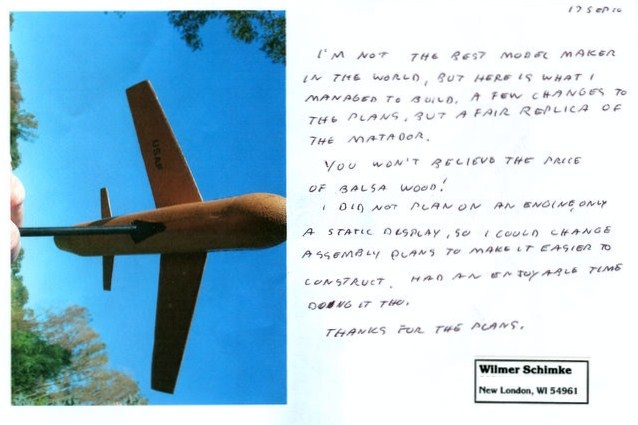 17 SEP 10
I'M NOT THE BEST MODEL MAKER
IN THE WORLD, BUT HERE IS WHAT I
MANAGED TO BUILD. A FEW CHANGES TO
THE PLANS, BUT A FAIR REPLICA OF
THE MATADOR.
YOU WON'T BELIEVE THE PRICE
OF BALSA WOOD!
I DID NOT PLAN ON AN ENGINE, ONLY
A STATIC DESPLAY, SO I COULD CHANGE
ASSEMBLY PLANS TO MAKE IT EASIER TO
CONSTRUCT. HAD AN ENJOYABLE TIME
DOING IT THO.
THANKS FOR THE PLANS.
Wilmer Schimke
New London, WI 54961
USAF